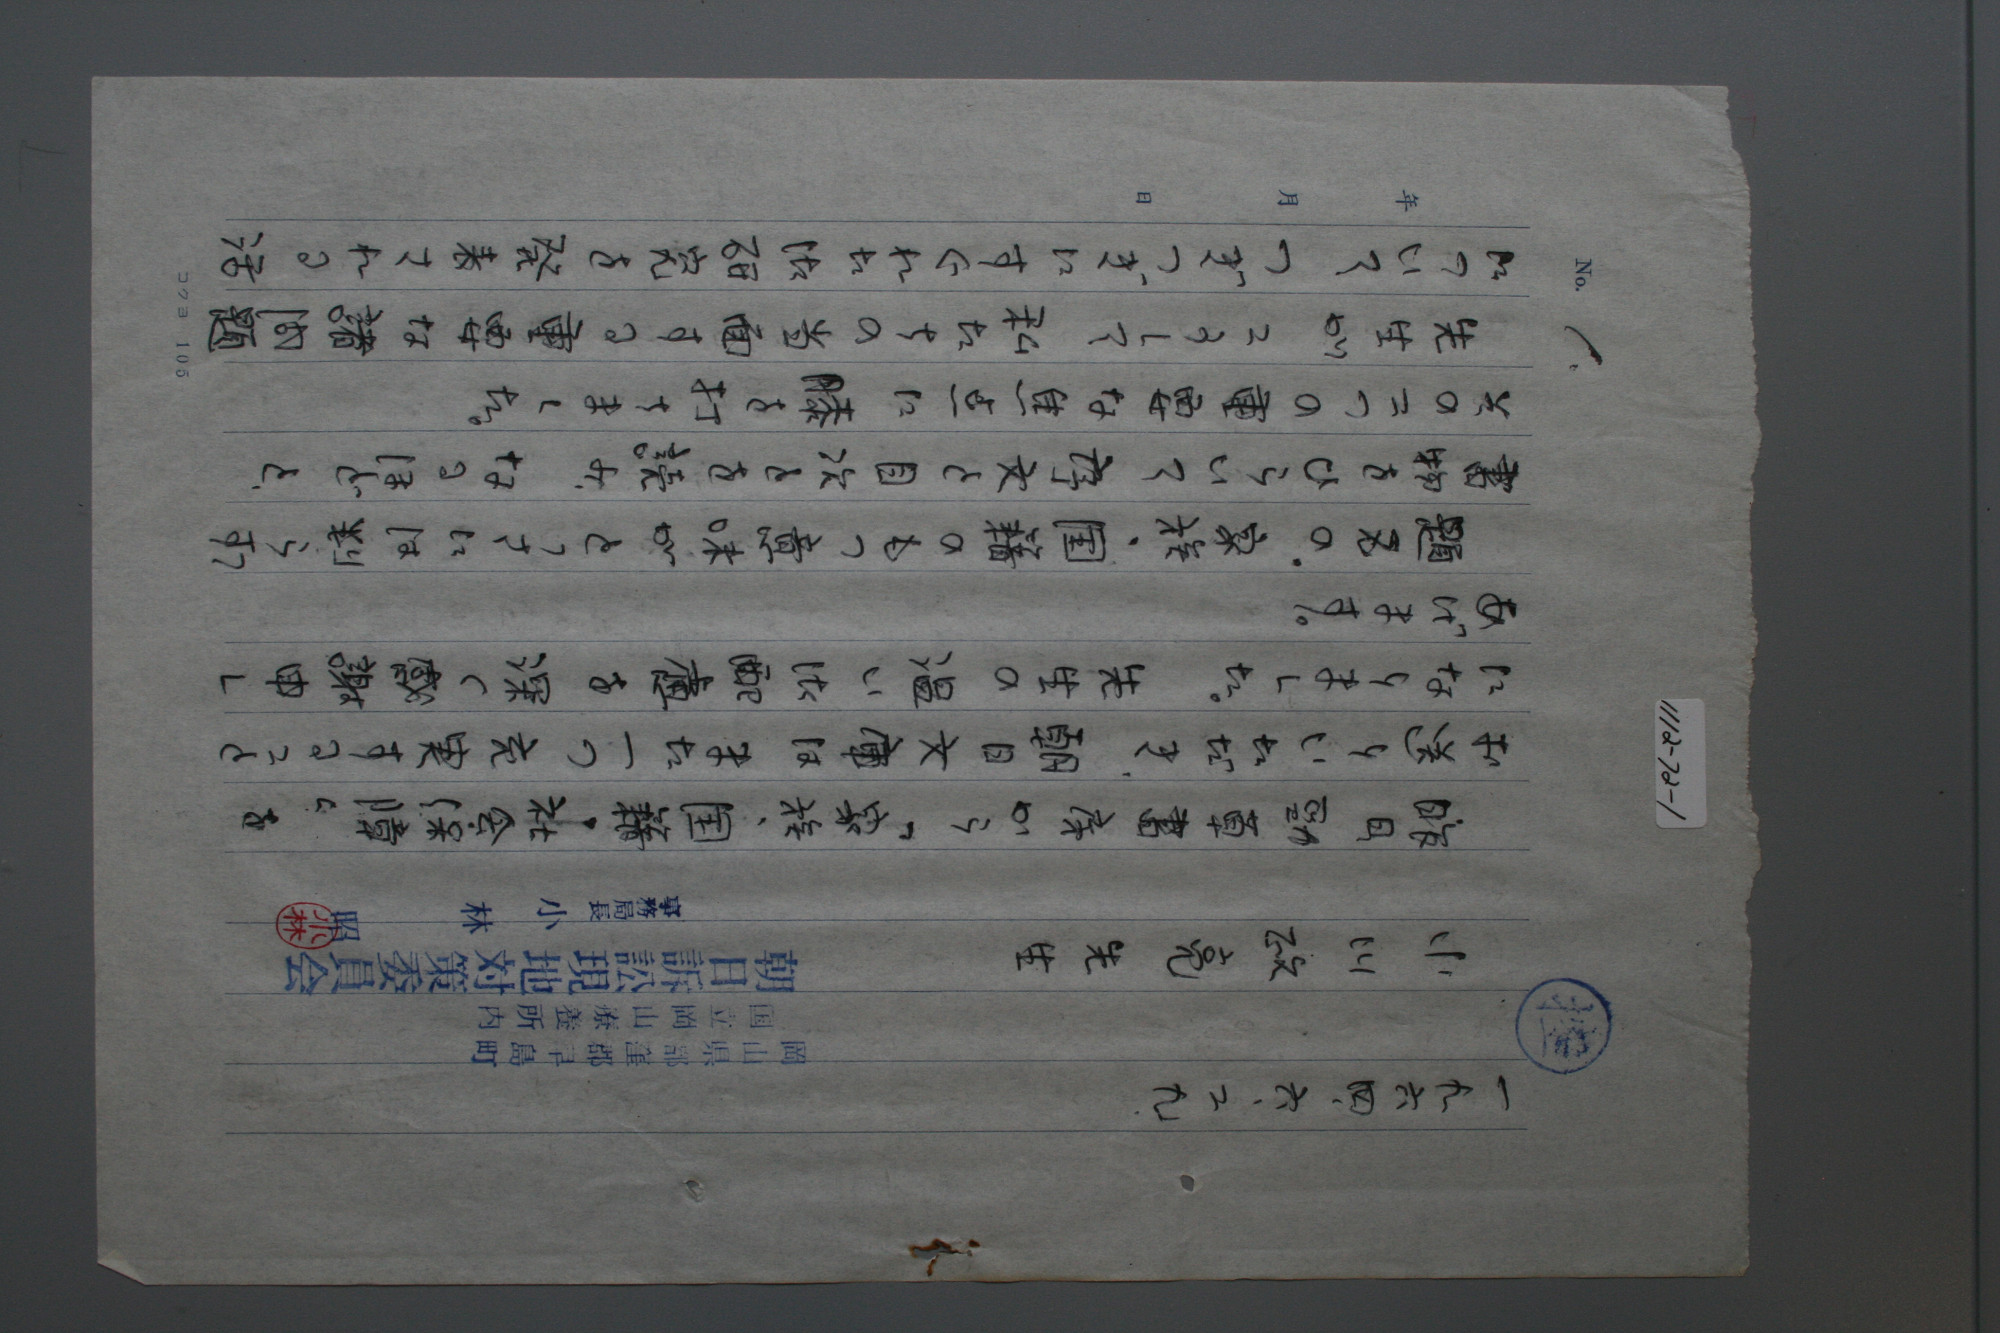 No. 1
年 月 日
一九六四、六、二九
岡山県都窪郡早島町
国立岡山療養所内
朝日訴訟現地対策委員会
事務局長 小林 昭
小林
小川政亮先生
昨日勁草書房から「家族、国籍、社会保障」を
お送りいただき、朝日文庫はまた一つ充実すること
になりました。先生の温い御配慮を深く感謝申し
あげます。
題名の、家族、国籍のもつ意味がとっさには判らず、
書物をひらいて序文と目次とを読み、なるほどと、
その二つの重要な焦点に膝を打ちました。
先生が こうして 私たちの当面する重要な諸問題
について つぎつぎにすぐれた御研究を発表される活
コクヨ 105